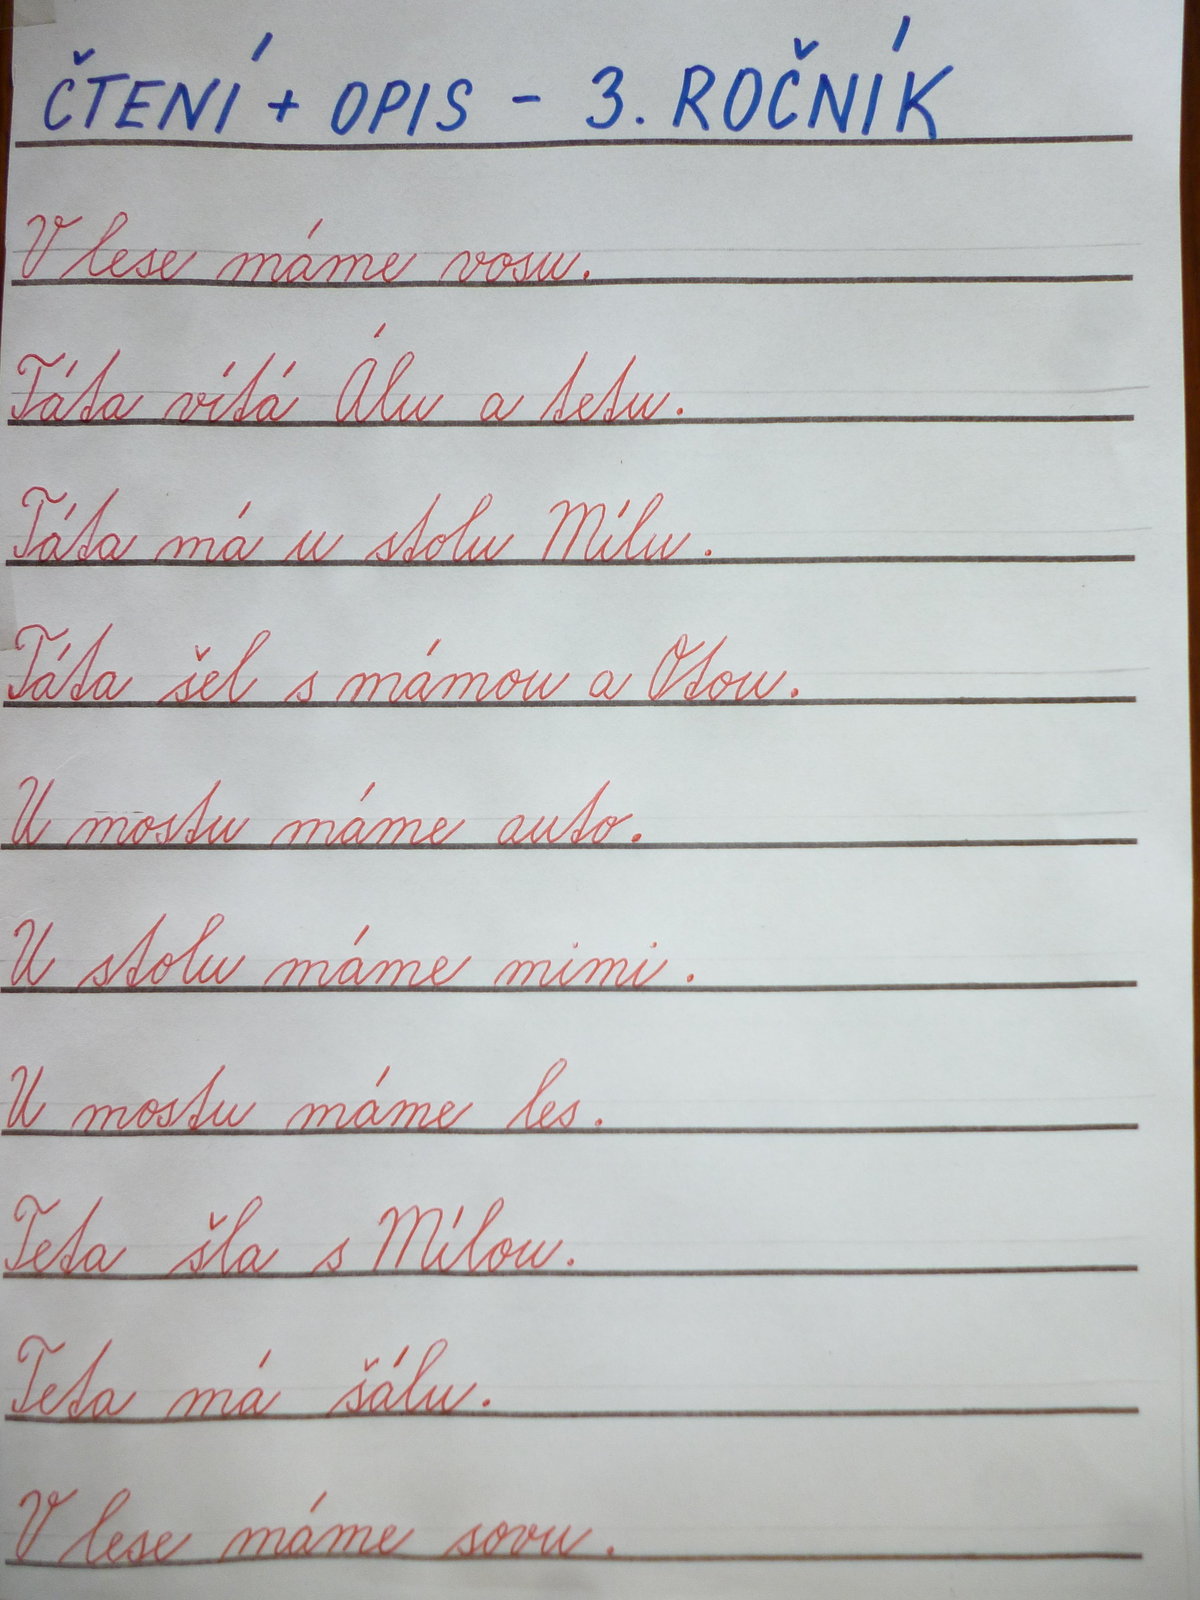 ČTENÍ + OPIS - 3. ROČNÍK
V lese máme vosu.
Táta vítá Álu a tetu.
Táta má u stolu Mílu.
Táta šel s mámou a Otou.
U mostu máme auto.
U stolu máme mimi.
U mostu máme les.
Teta šla s Mílou.
Teta má šálu.
V lese máme sovu.